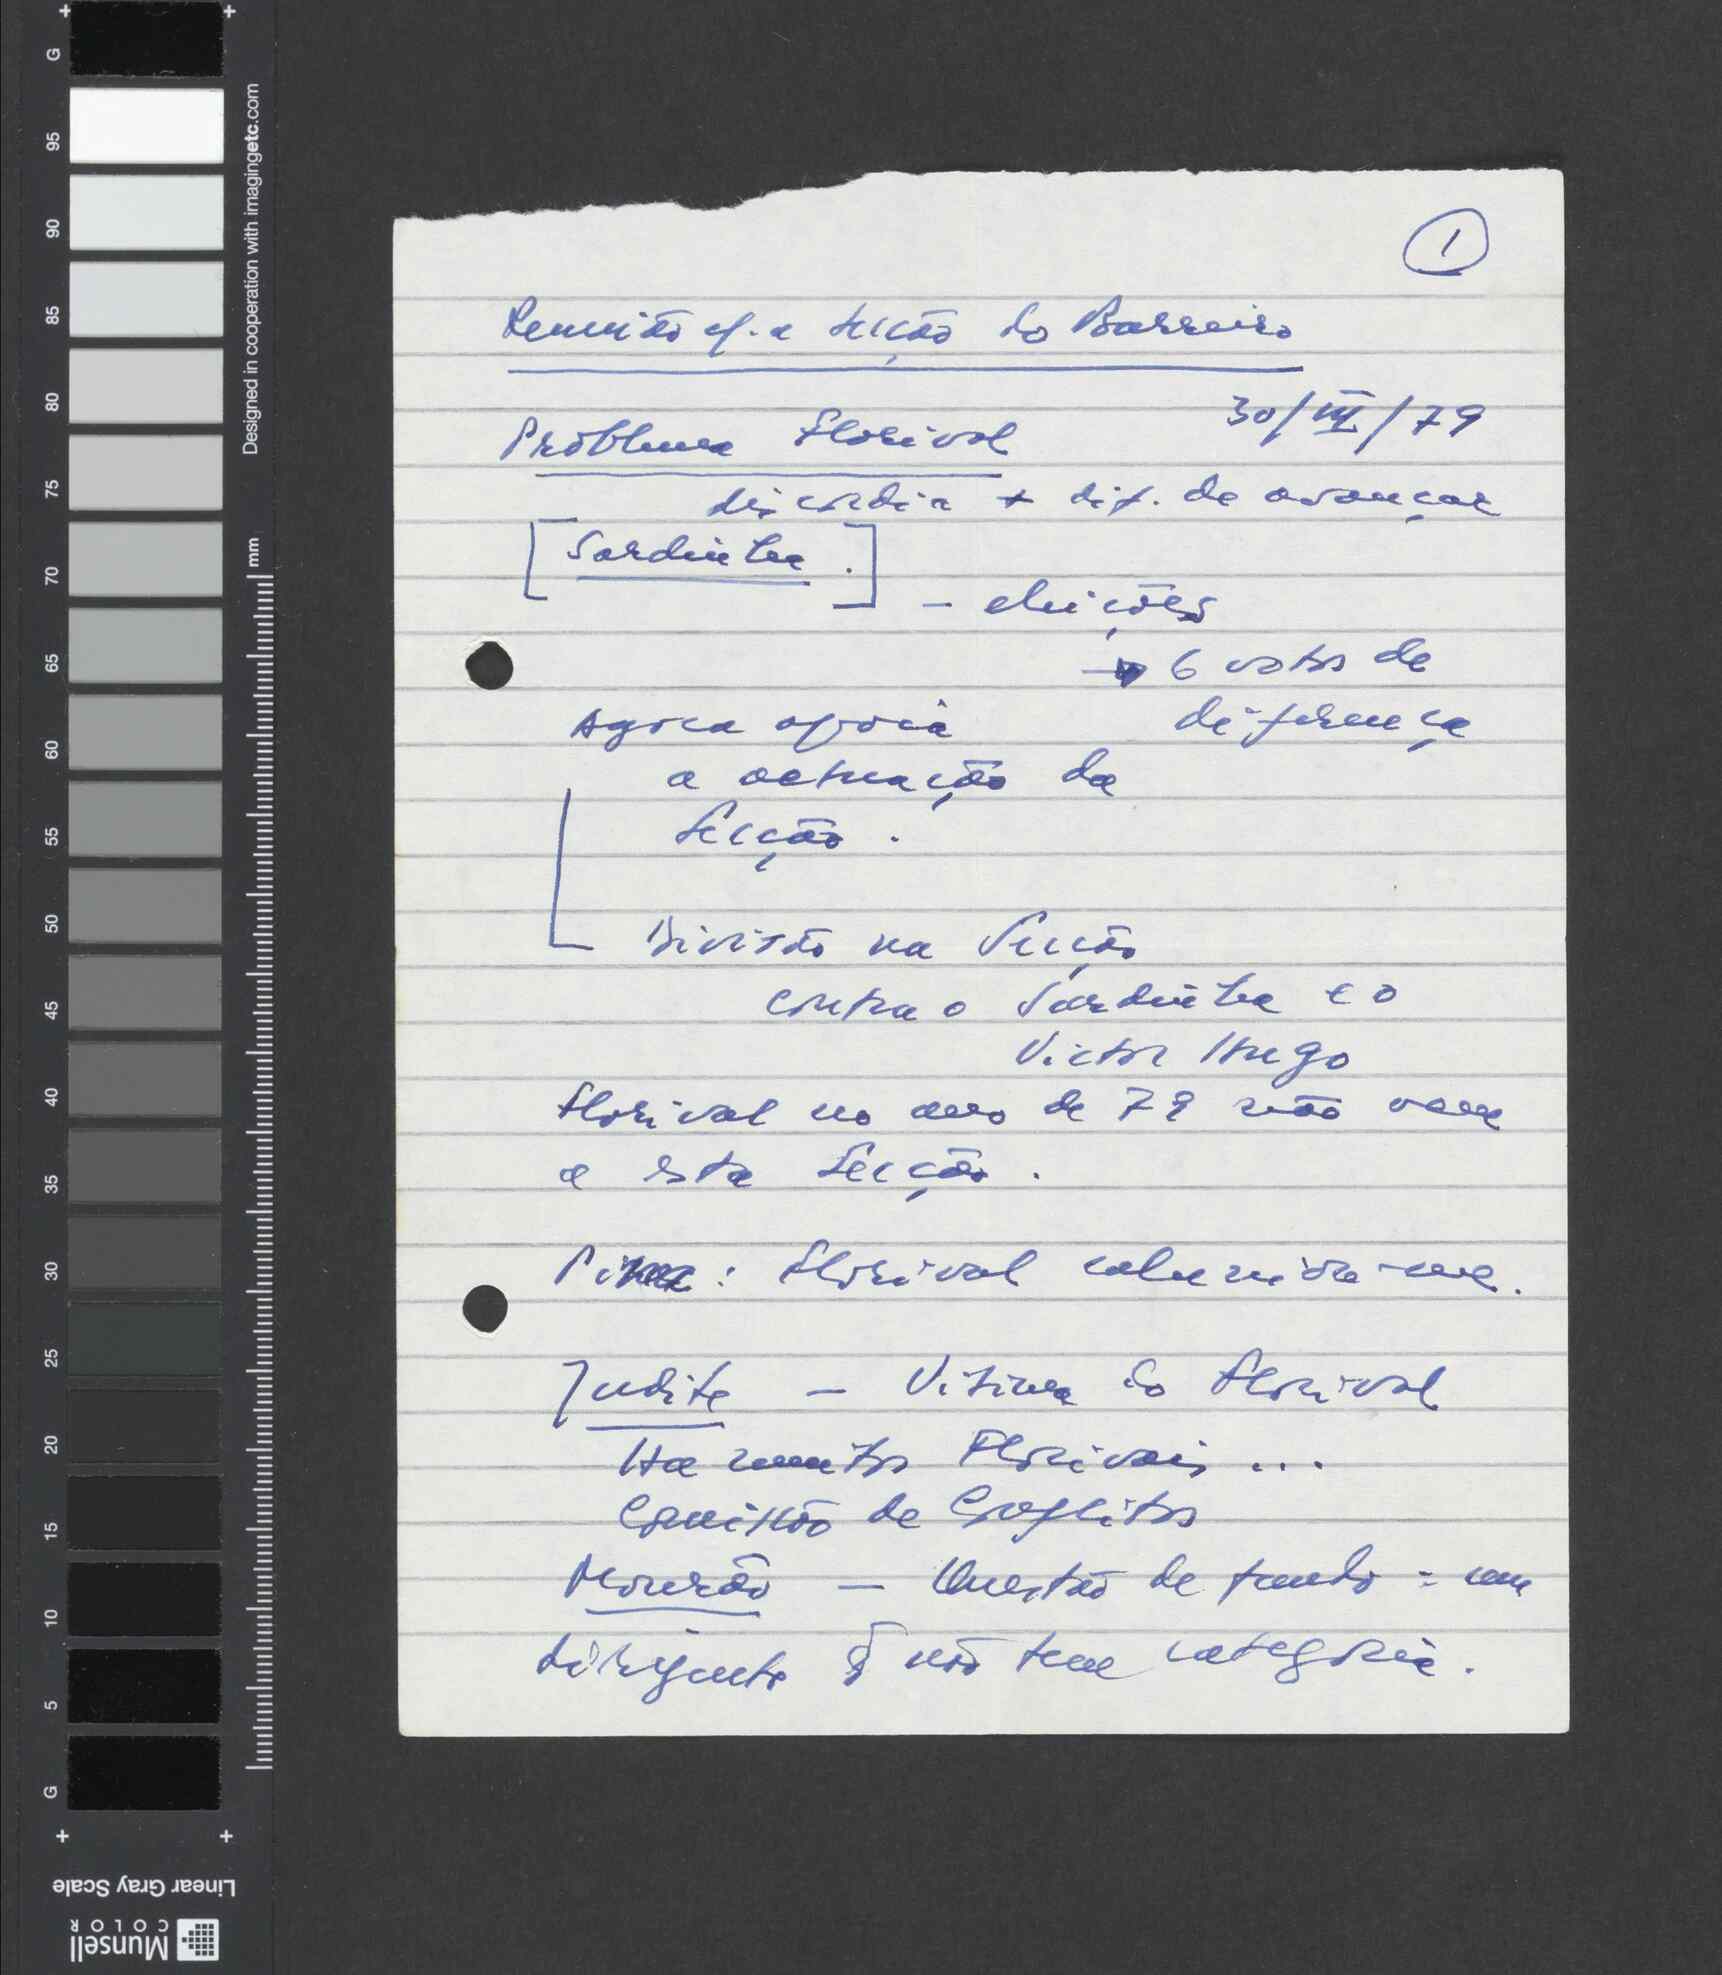 1
Reunião c/. a Secção do Barreiro
30/III/79
Problema Florival
discordia + dif. de avançar
[Sardinha.]
- eleições
→ 6 votos de
diferença
Agora apoia
a actuação da
Secção.
Divisão na Secção
contra o Sardinha e o
Victor Hugo
Florival no ano de 79 não vem
a esta Secção.
: Florival calunia-me.
Judite - Vitima do Florival
Ha muitos Florivais...
Comissão de Conflitos
Mourão - Questão de fundo: um
dirigente q̃ não tem categoria.
G
95
90
85
80
75
70
65
60
55
50
45
40
35
30
25
20
15
10
5
G
mm
Designed in cooperation with imagingetc.com
Linear Gray Scale
Munsell
COLOR